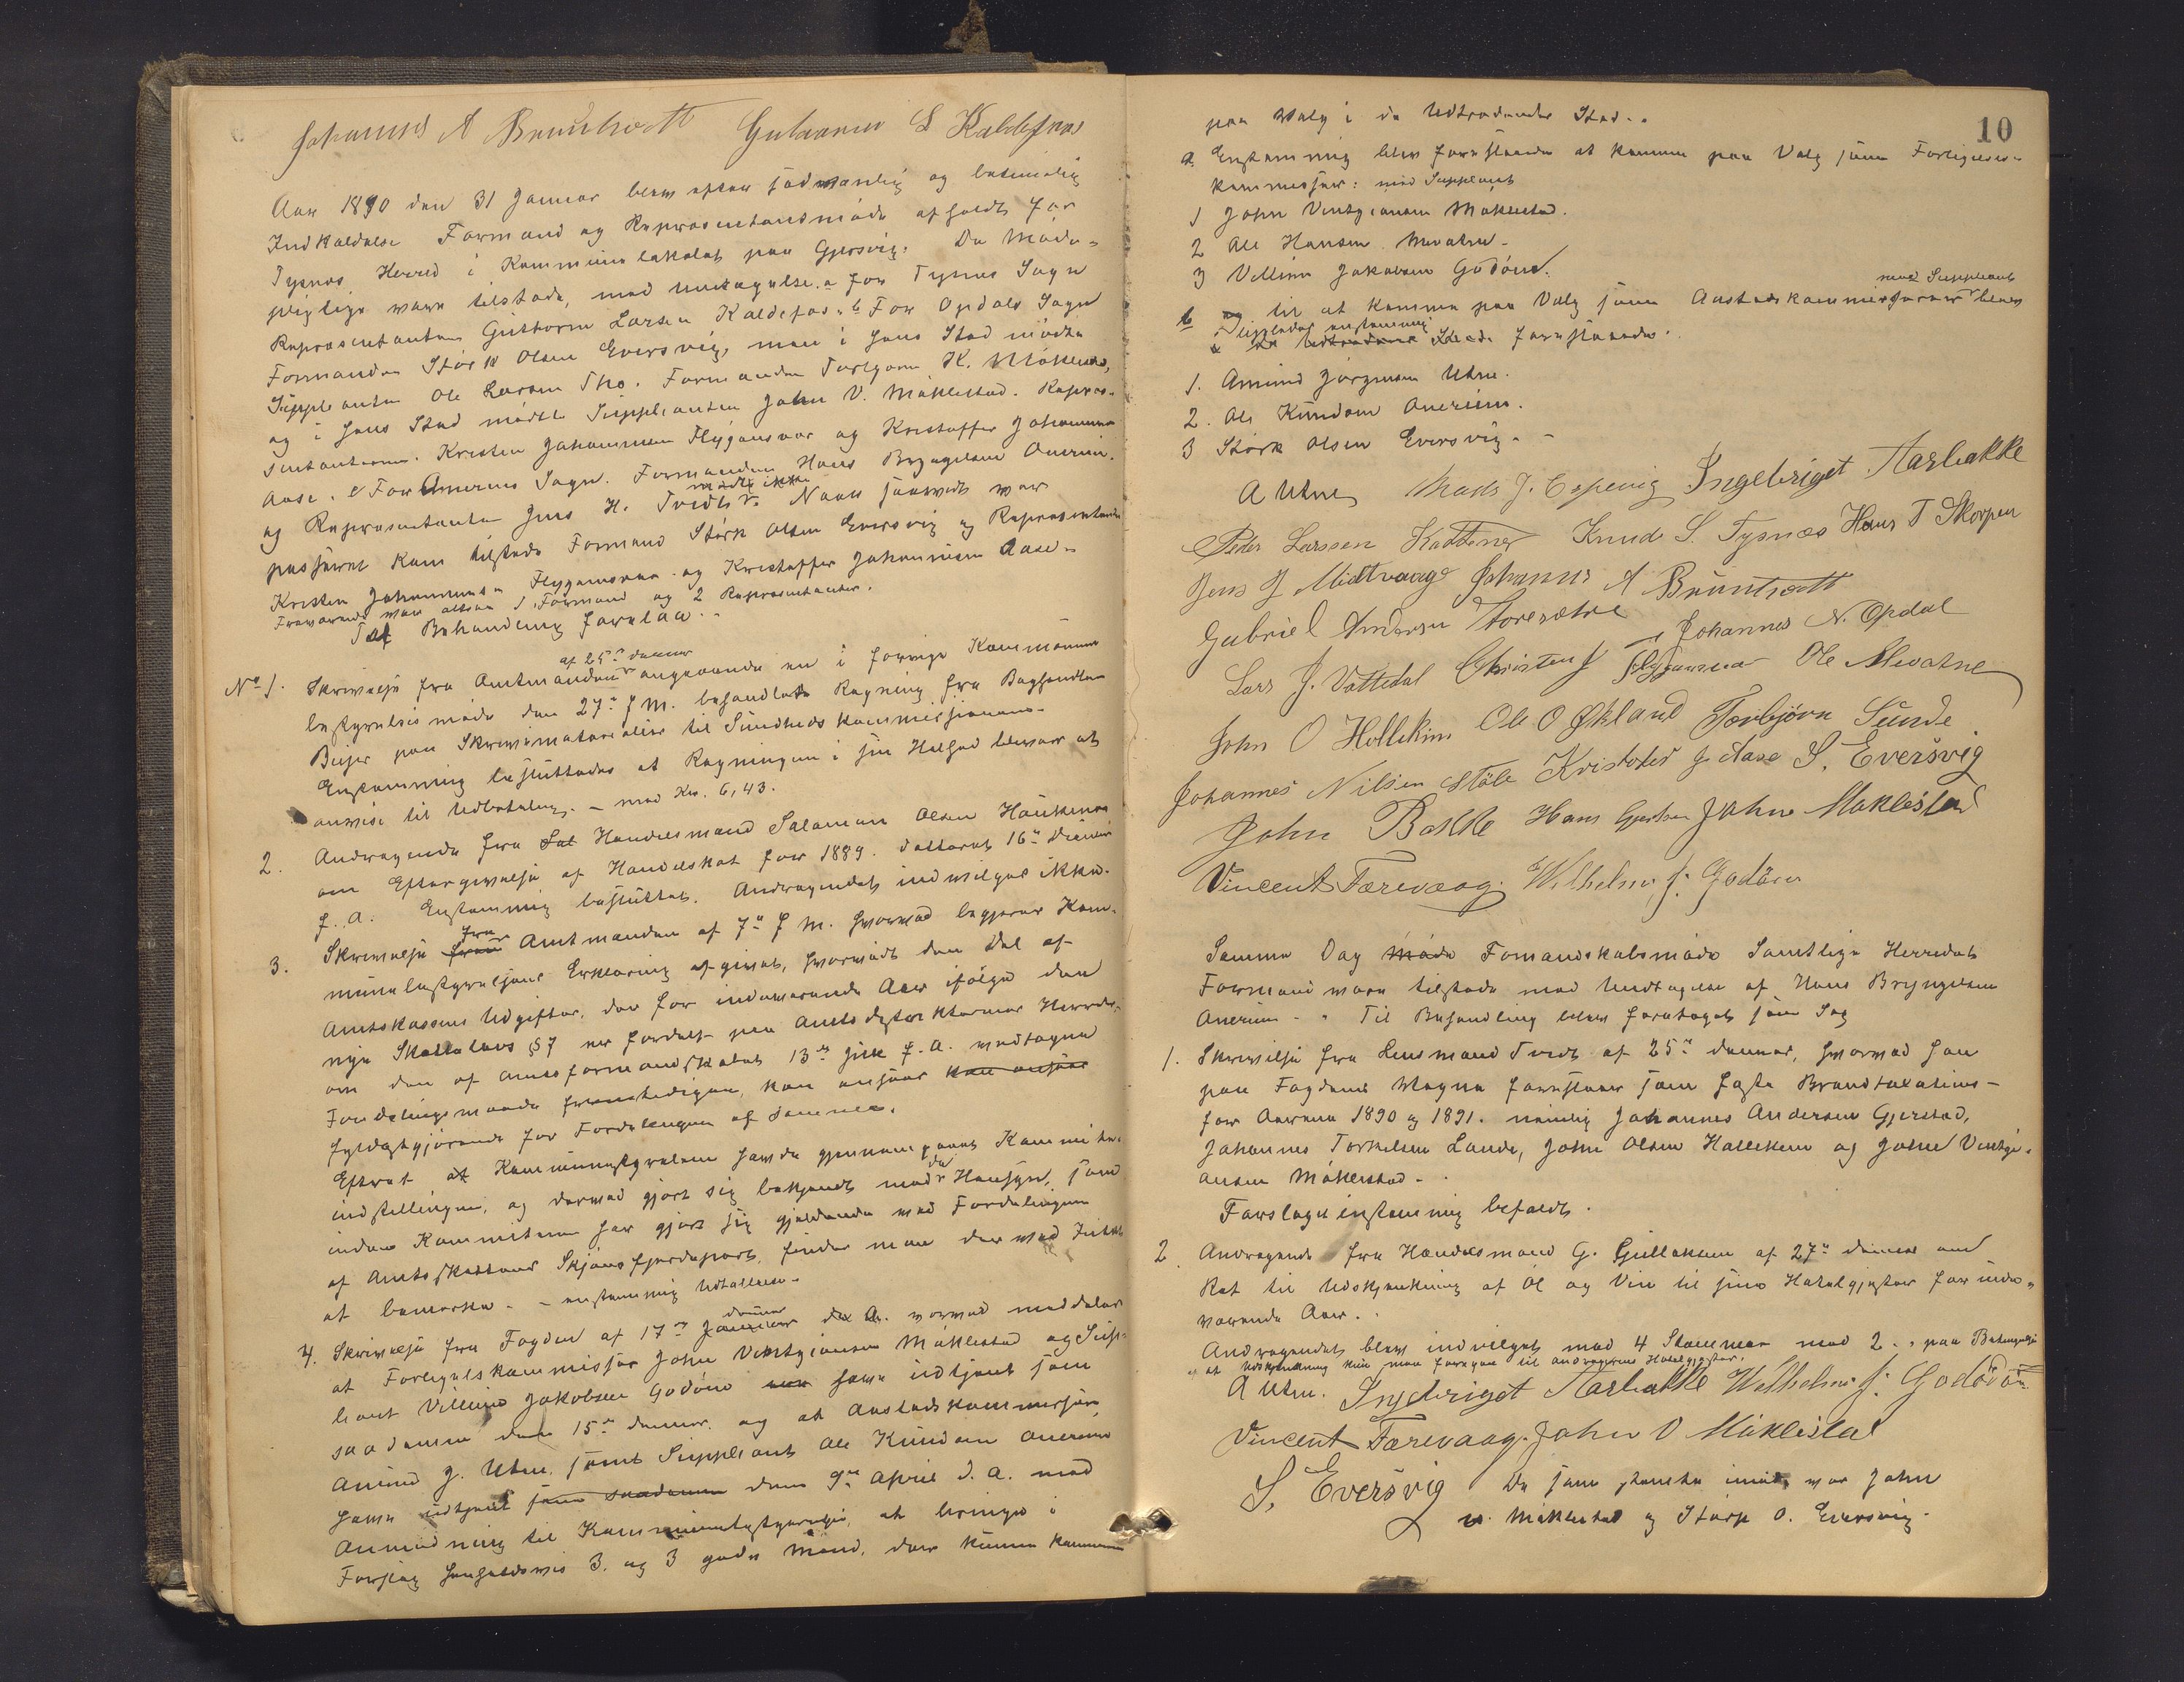 Johannes A Bruntveit Guttormer L Kaldefos
Aar 1890 den 31 Januar blev efter sædvanlig og betimelig
Indkaldelse Formand og Repræsentantmøde afholdt for
Tysnes Herred i Kommunelokalet paa Gjersvig. De Møde-
pligtige vare tilstede, med Undtagelse. a for Tysnes Sogn
Repræsentanten Guttorm Larsen Kaldefos. b For Opdals Sogn
Formanden Størk Olsen Eversvig, men i hans Sted mødte
Suppleanten Ole Larsen Tho. Formanden Torbjørn K. Møklestad,
og i hans Sted mødte Suppleanten John V. Møklestad. Repræ-
sentanterne. Kristen Johannesen Flygansvær og Kristoffer Johannesen
Aase. c For Onerems Sogn. Formanden Hans Brynjelsen Onereim.
og Repræsentanten Jens H. Tvedt
mødte ikke
. Naar saavidt var
passeret kom tilstede Formand Størk Olsen Eversvig og Repræsentanten
Kristen Johannesen Flygansvær og Kristoffer Johannesen Aase.
Fraværende var altsaa 1 Formand og 2 Repræsentanter.
Til Behandling forelaa.
No 1. Skrivelse fra Amtmanden
af 25de dennes
angaaende en i forrige Kommune
bestyrelsesmøde den 27de f M. behandlede Regning fra Boghandler
Beyer paa Skrivematerialier til Sundhedskommissionen.
Enstemmig besluttedes at Regningen i sin Helhed bliver at
anvise til Udbetaling. – med Kr. 6,43.
2. Andragende fra Handelsmand Salamon Olsen Haukenes
om Eftergivelse af Handelskat for 1889. datteret 16de
f. A. Enstemmig besluttet. Andragendet indvilges ikke.
3. Skrivelse
fra
Amtmanden af 7de f M. hvorved begjæres Kom-
munebestyrelsens Erklæring afgivet, hvorvidt den Del af
Amtskassens Udgifter, der for indeværende Aar ifølge den
nye Skattelovs § 7 er fordelt paa Amtsdistrikternes Herreder,
om den af Amtsformandskabet 13de Juli f. A. vedtagne
Fordelingsmaade fremdeles, kan ansees kan ansees
fyldestgjørende for Fordelingen af samme.
Efterat at Kommunestyrelsen havde gjennemgaaet Kommitte-
indstillingen, og derved gjort sig bekjendt med
de
Hensyn, som
inden Kommiteen har gjort sig gjældende med Fordelingen
af Amtsskattens Skjønsfjerdepart, finder man derved Intet
at bemærke. – enstemmig Udtallelse.
4. Skrivelse fra Fogden af 17de
dennes
Januar d. A. vorved meddeles
at Forligelskommissær John Vintzjansen Møklestad og Sup-
leant Villum Jakobsen Godøen have udtjent som
saadanne den 15de dennes. og at Anstedskommissær
Amund J. Utne. samt Suppleant Ole Knudsen Onereim
have udtjent som saadanne den 9de April d. A. med
Anmodning til Kommunebestyrelsen, at bringe i
Forslag henholdsvis 3. og 3 gode Mænd, der kunne komme
10
paa Valg i de Udtrædendes Sted.
a. Enstemmig blev foreslaaede at komme paa Valg som Forligelses-
kommissær: med Suppleant
1 John Vintzjansen Møklestad.
2 Ole Hansen Mevatne.
3 Villum Jakobsen Godøen.
b og til at komme paa Valg som Anstedskommissærer
med Suppleant
blev
ligeledes enstemmig
i de Udtrædendes Sted. foreslaaede.
1. Amund Jørgensen Utne.
2. Ole Knudsen Onereim.
3 Størk Olsen Eversvig.
A Utne Mads J. Espevig Ingebriget Aarbakke
Peder Larssen Kattenes Knud S. Tysnæs Hans T Skorpen
Jens J Midtvaage Johannes A Bruntveit
Gabriel Andersen Storesætre Johannes N. Opdal
Lars J. Vattedal Christen J Flygansvær Ole Mevatne
John O Hollekim Ole O Økland Torbjörn Sunde
Johannes Nilsen Støle Kristofer J Aase S. Eversvig
John Bakke Hans John Møklestad
Vincent Færevaag. Wilhelm J. Godöen
Samme Dag Møde Fomandskabsmøde Samtlige Herredets
Formænd vare tilstede med Undtagelse af Hans Brynjelsen
Onereim. Til Behandling blev foretaget som Sag
1. Skrivelse fra Lensmand Tvedt af 25de dennes, hvorved han
paa Fogdens Vegne foreslaar som faste Brandtaxations-
for Aarene 1890 og 1891. nemlig Johannes Andersen Gjerstad,
Johannes Torkelsen Lande, John Olsen Hollekim og John Vintzi-
ansen Møklestad.
Forslaget enstemmig bifaldt.
2. Andragende fra Handelsmand G. Gullaksen af 27de dennes om
Ret til Udskjænkning af Öl og Vin til sine Hotelgjester for inde-
værende Aar.
Andragendet blev indvilget med 4 Stemmer mod 2. paa Betingelse
af at Udskjænkning kun maa foregaa til Andragerens Hotelgjester.
A Utne. Ingebriget Aarbakke Wilhelm J. Godöen
Vincent Færevaag. John V Møklestad
S. Eversvig De som stemte imod var John
V. Møklestad og Størk O. Eversvig.